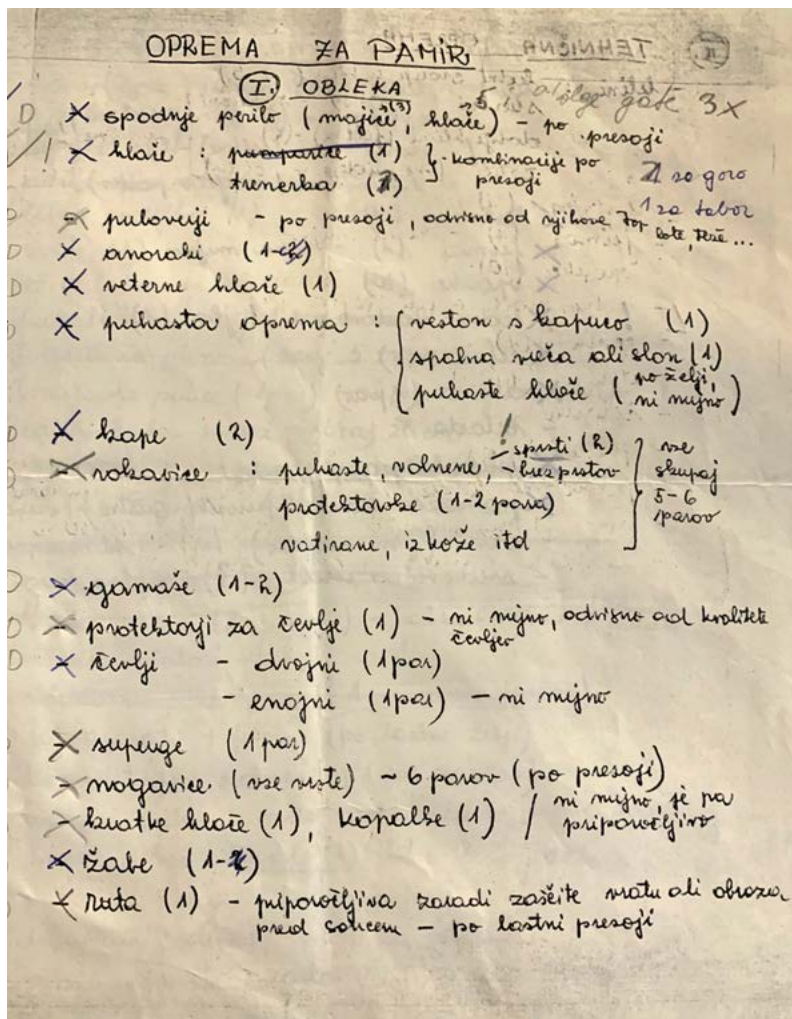 OPREMA ZA PAMIR
I. OBLEKA
dolge gate 3x
D X spodnje perilo (majice (3), hlače) 5 - po presoji
/ ! X hlače : pumparice (1) } - kombinacije po
trenerka (1) presoji
1 za goro
1 za tabor
X puloverji - po presoji, odvisno od njihove top
lote, teže ...
D X anoraki (1-2)
D X veterne hlače (1)
D X puhasta oprema : { veston s kapuco (1)
spalna vreča ali slon (1)
puhaste hlače ( po želji,
ni nujno )
D X kape (2)
X rokavice : puhaste, volnene, ! - s prsti (2)
- brez prstov
protektorske (1-2 para)
vatirane, iz kože itd
vse
skupaj
5-6
parov
D X gamaše (1-2)
D X protektorji za čevlje (1) - ni nujno, odvisno od kvalitete
čevljev
D X čevlji - dvojni (1par)
- enojni (1par) - ni nujno
X superge (1 par)
- nogavice (vse vrste) ~ 6 parov (po presoji)
- kratke hlače (1), kopalke (1) / ni nujno, je pa
priporočljivo
X žabe (1-2)
X ruta (1) - priporočljiva zaradi zaščite vratu ali obraza
pred soncem - po lastni presoji